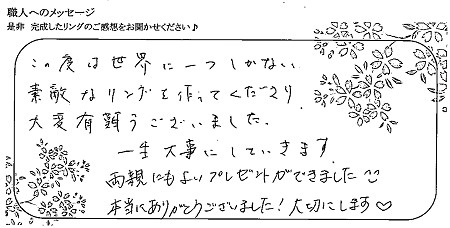 職人へのメッセージ
是非 完成したリングのご感想をお聞かせください♪
この度は世界に一つしかない
素敵なリングを作ってくださり
大変有難うございました。
一生大事にしていきます。
両親にもよいプレゼントができました
本当にありがとうございました！大切にします♡